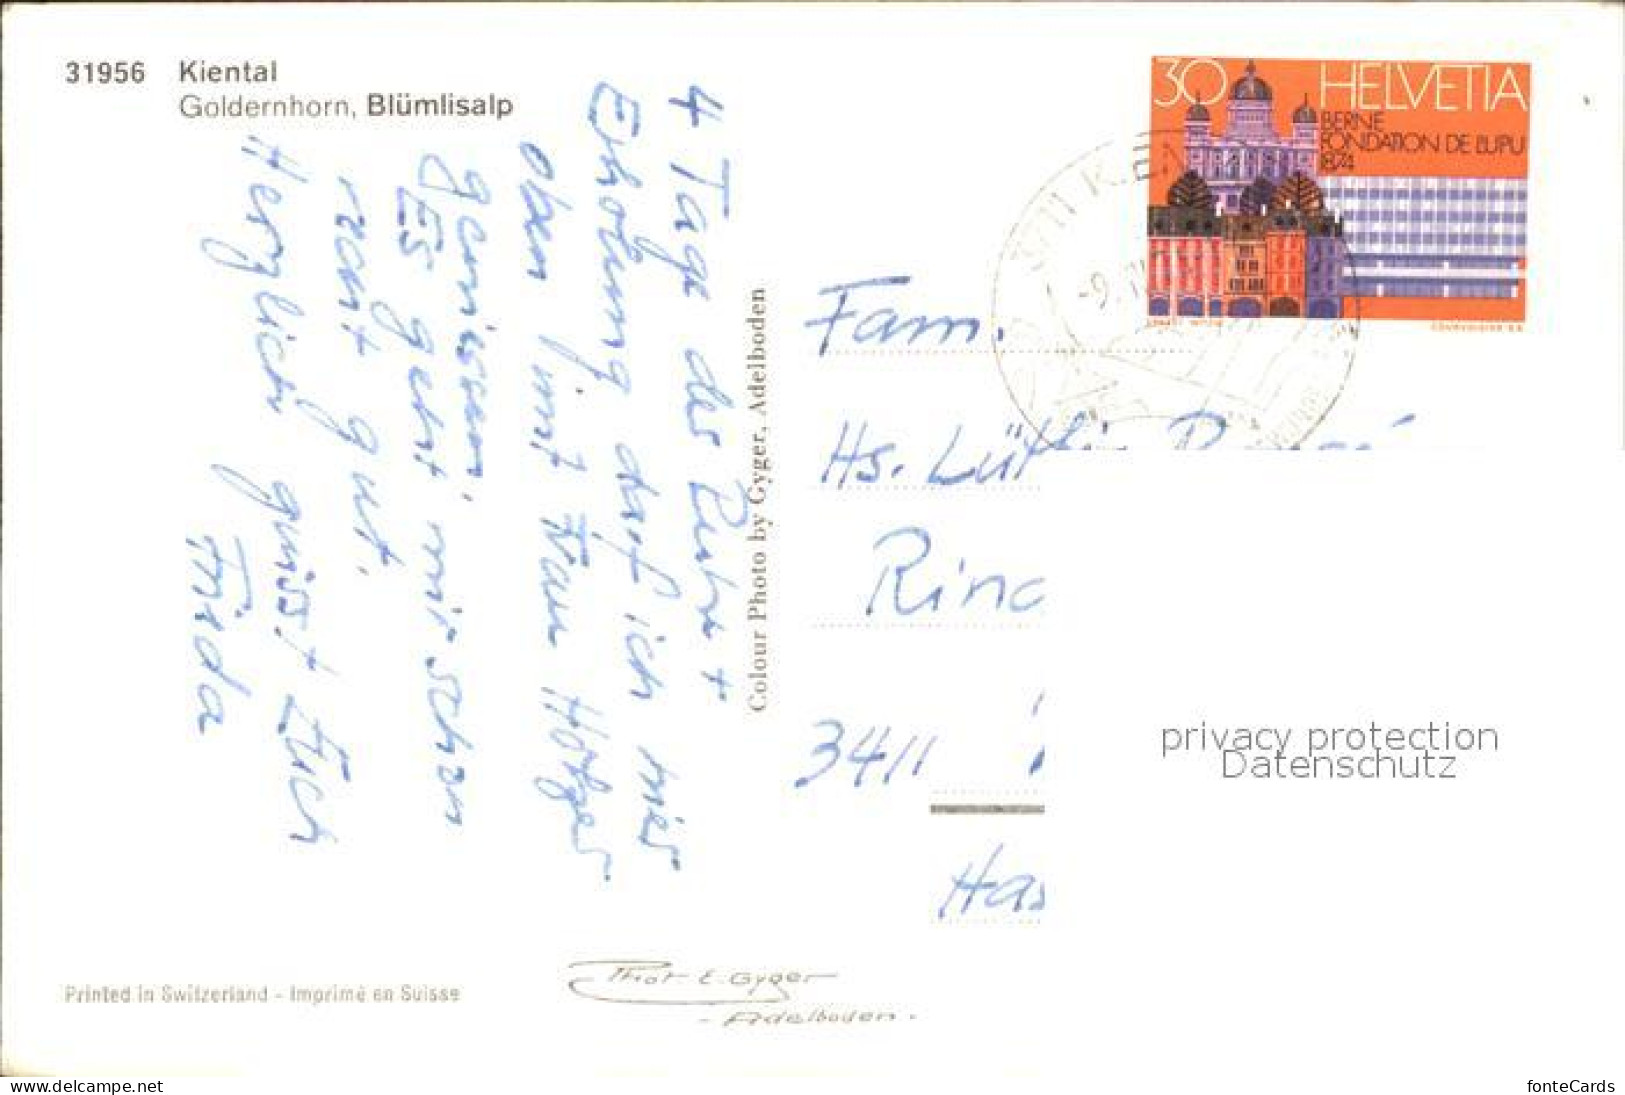 31956 Kiental
Goldernhorn, Blümlisalp
4 Tage der Ruhe +
Erholung darf ich hier
oben mit Frau Hofer
geniessen.
Es geht mir schon
recht gut.
Herzlich grüsst Euch
Frida
Colour Photo by Gyger, Adelboden
30 HELVETIA
BERNE
FONDATION DE L'UPU
1874
COURVOISIER S.A.
-9.
Fam.
Hs. Lüthi
Rin
3411
Has
privacy protection
Datenschutz
Printed in Switzerland - Imprimé en Suisse
Phot E. Gyger
- Adelboden -
www.delcampe.net
fonteCards